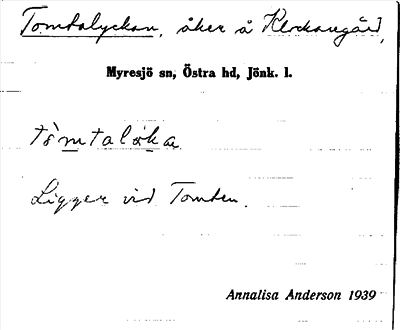 Tomtalyckan, åker å Klockaregård,
Myresjö sn, Östra hd, Jönk. l.
tòmtalỳka
Ligger vid Tomten.
Annalisa Anderson 1939